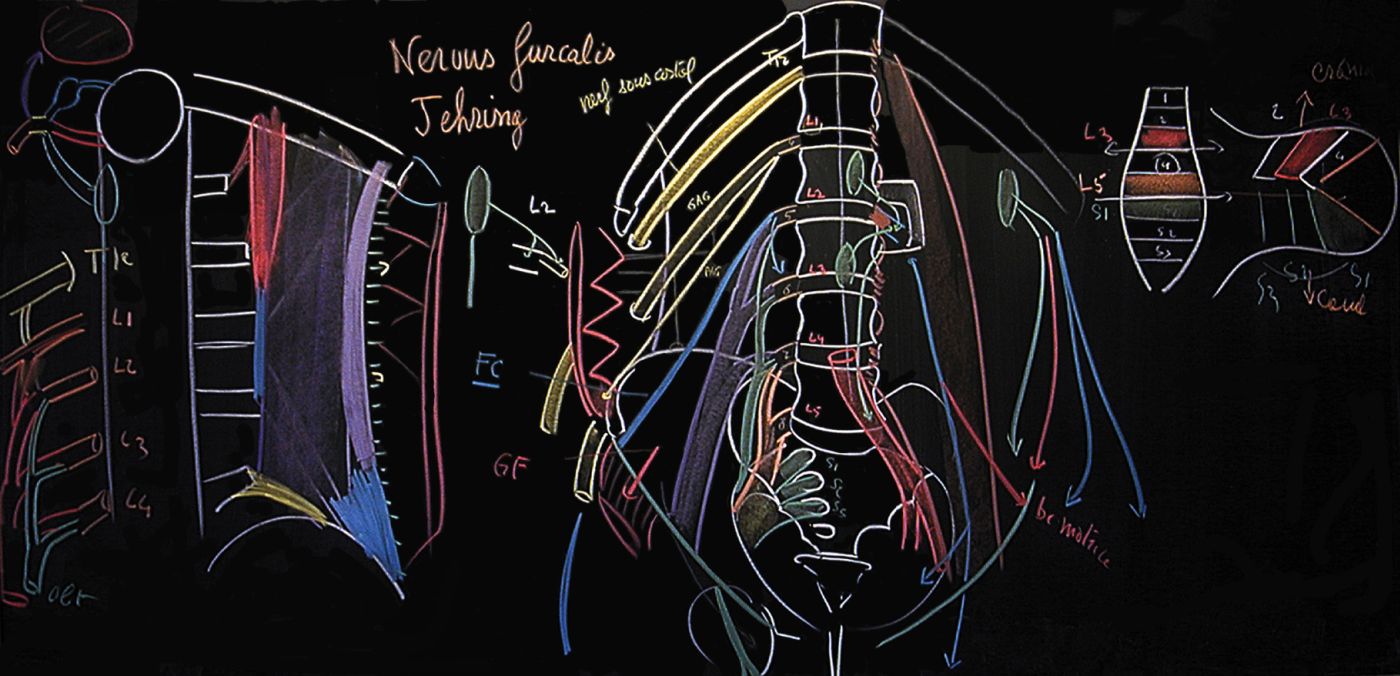 Nervus furcalis
Jehring
nerf sous costal
T12
L1
L2
L3
L4
L5
GAG
S1
L2
FC
GF
T12
L1
L2
L3
L4
be motrice
1
2
L3
L4
L5
S1
S2
S3
2
L3
4
S1
caud